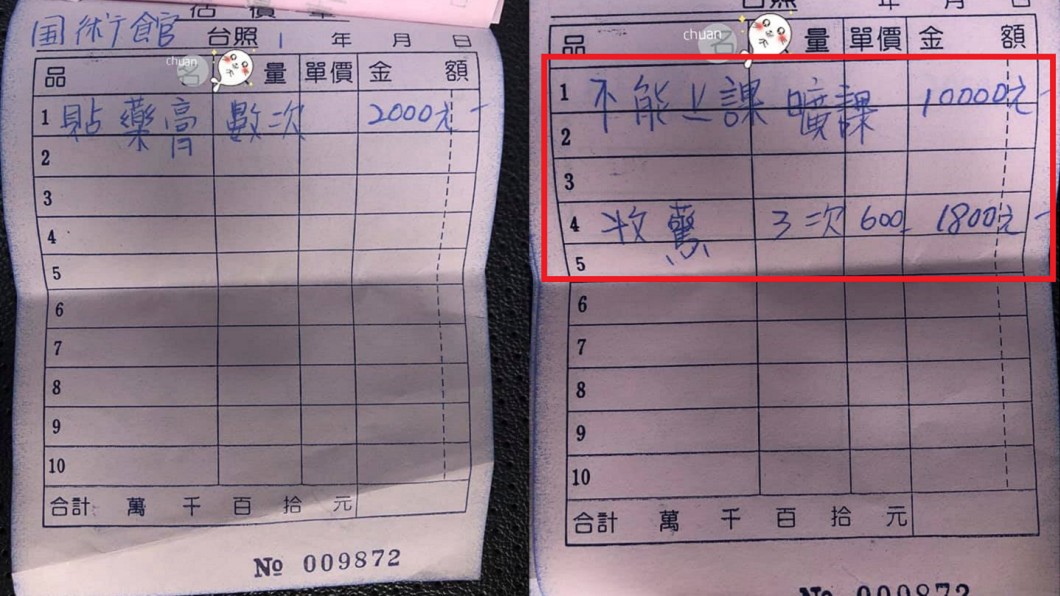 估價單
国術館 台照 1 年 月 日
chuan
品 名 量 單價 金 額
1 貼藥膏 數次 2000元
2
3
4
5
6
7
8
9
10
合計 萬 千 百 拾 元
№ 009872
台照 年 月 日
chuan
品 名 量 單價 金 額
1 不能上課 曠課 10000元
2
3
4 收驚 3次 600 1800元
5
6
7
8
9
10
合計 萬 千 百 拾 元
№ 009872